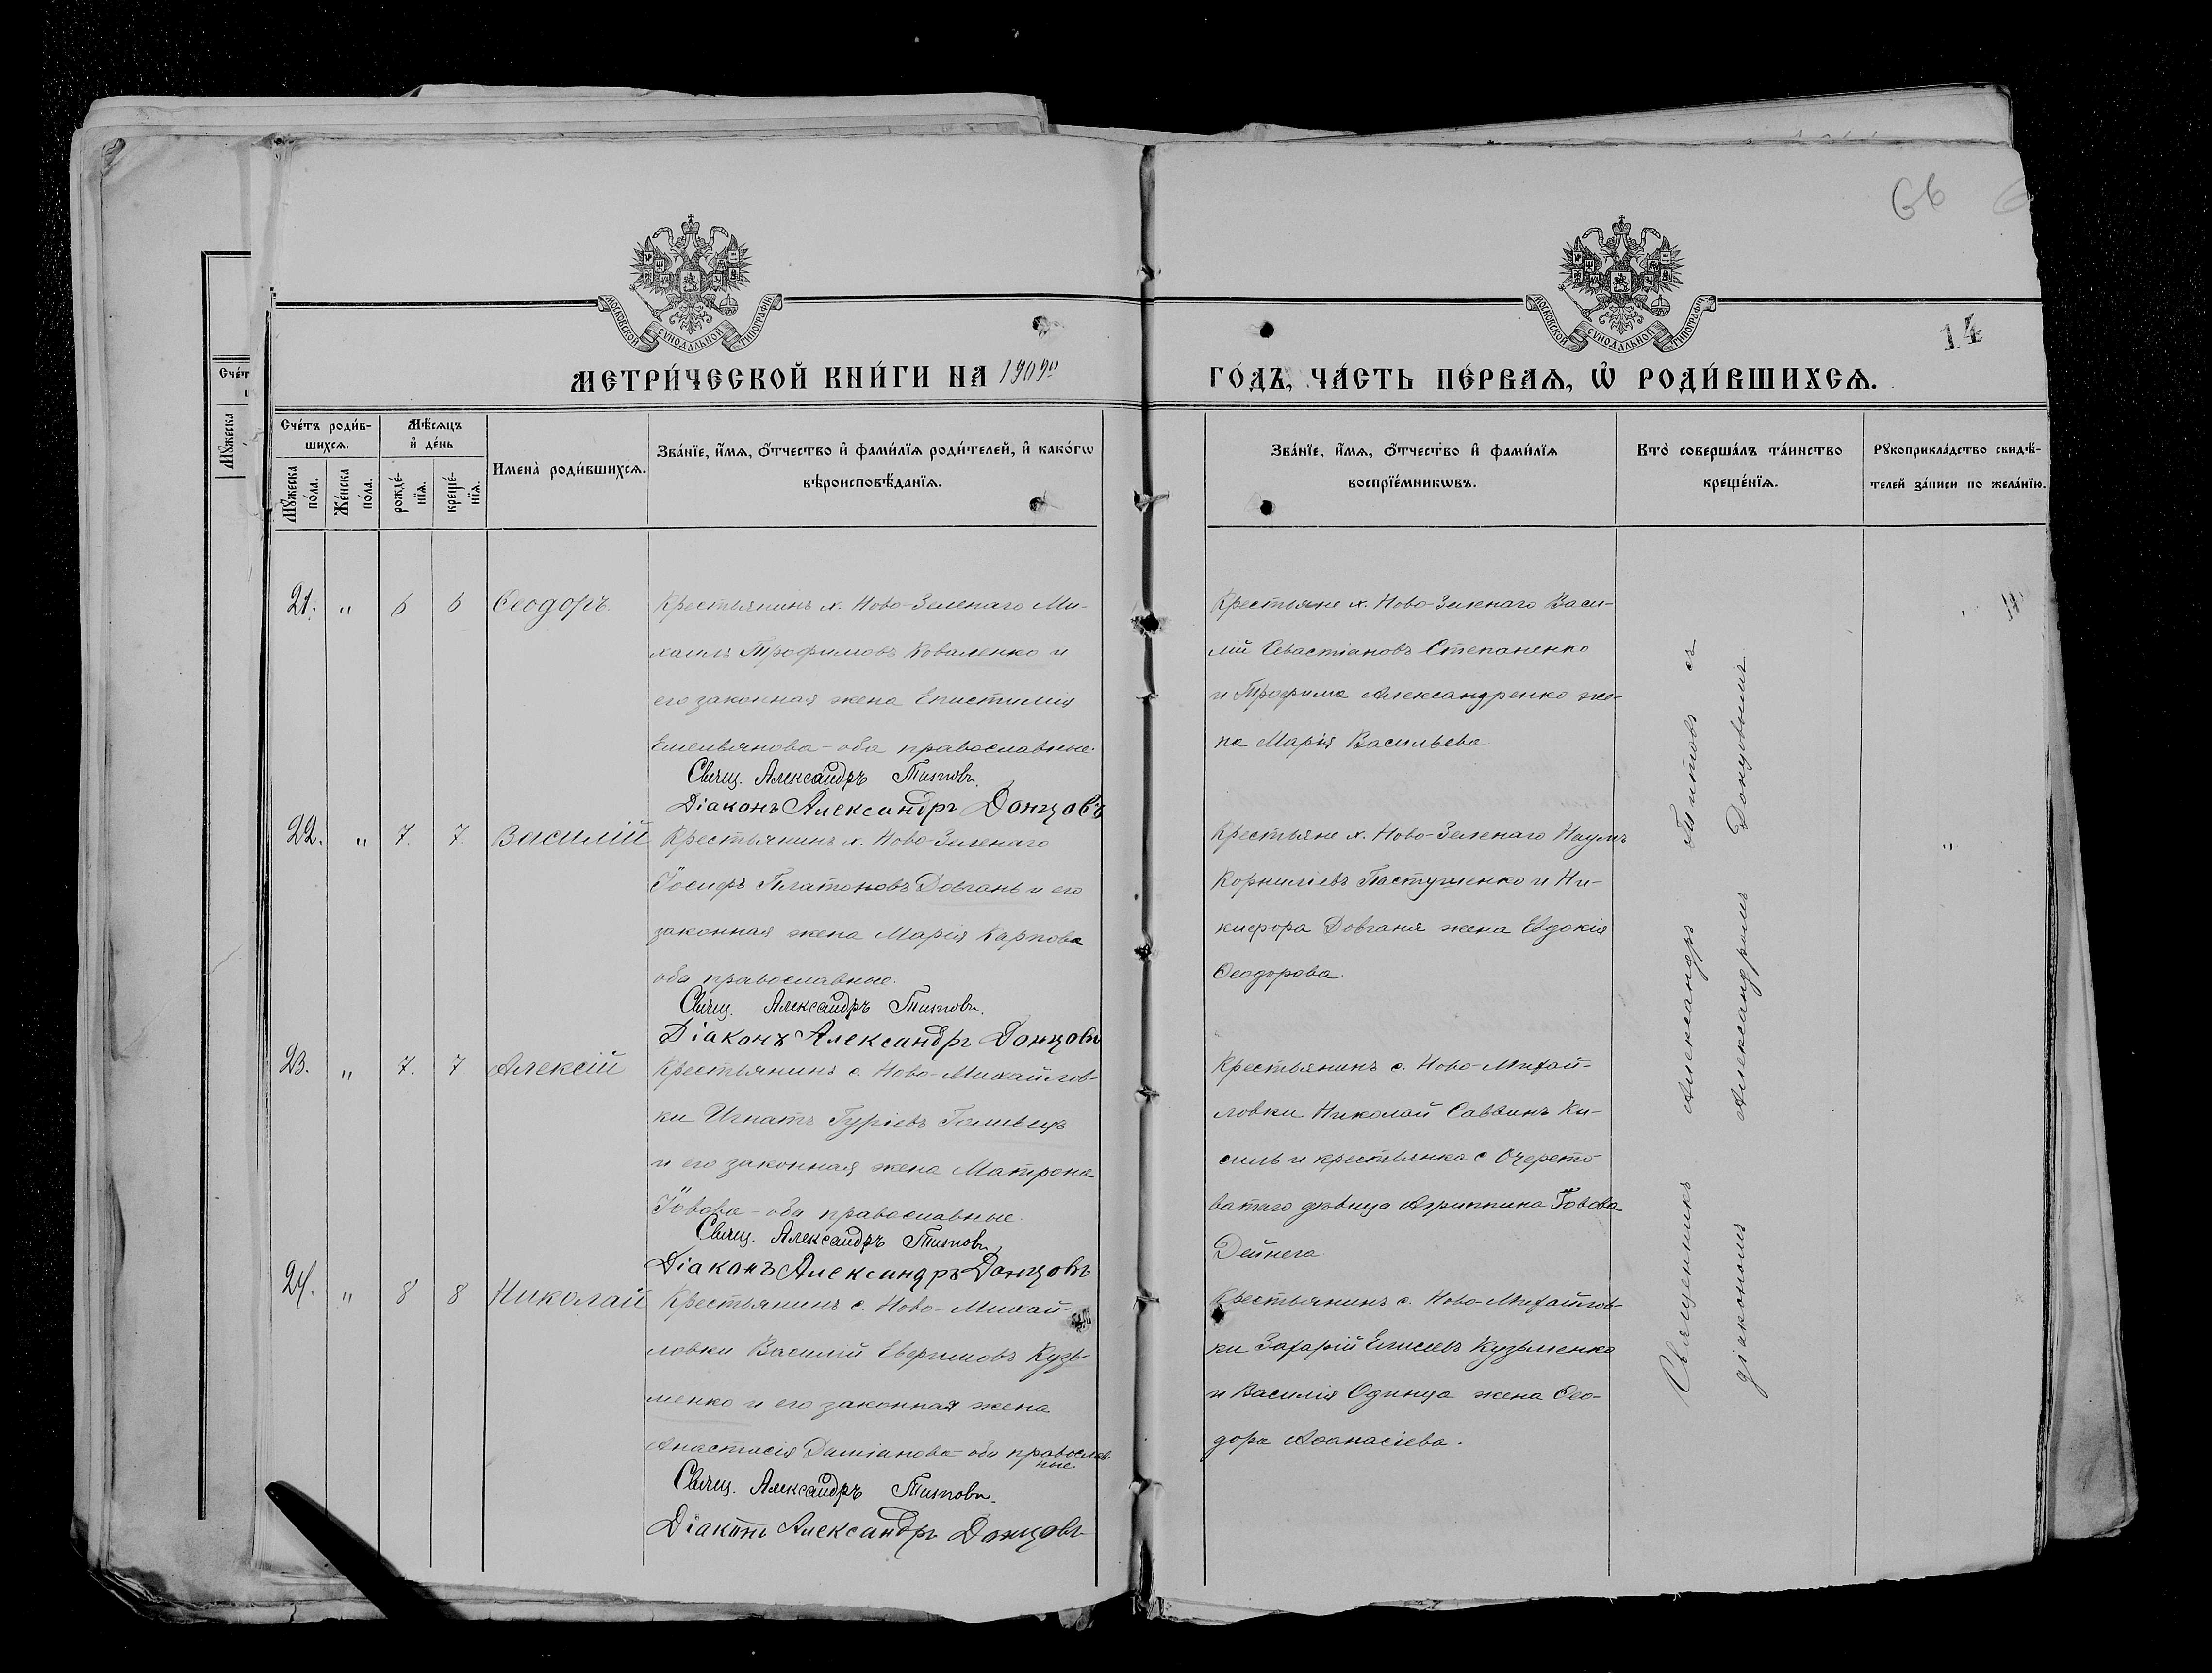 66
МОСКОВСКОЙ СУНОДАЛЬНОЙ ТИПОГРАФІИ
МОСКОВСКОЙ СУНОДАЛЬНОЙ ТИПОГРАФІИ
14
МЕТРИ́ЧЕСКОЙ КНИ́ГИ НА 1909й
ГО́ДЪ, ЧА́СТЬ ПЕ́РВАѦ, Ѡ҆ РОДИ́ВШИХСѦ.
Счет
Мꙋжеска
Сче́тъ роди́в-
шихсѧ.
Мѣ́сѧцъ
и҆ де́нь
Мꙋжеска по́ла.
Же́нска по́ла.
рожде́-нїѧ.
креще́-нїѧ.
Имена̀ роди́вшихсѧ.
Зва́нїе, и҆́мѧ, ѻ҆́тчество и҆ фами́лїѧ роди́телей, и҆ како́гѡ
вѣроисповѣ́данїѧ.
Зва́нїе, и҆́мѧ, ѻ҆́тчество и҆ фами́лїѧ
воспрїе́мникѡвъ.
Кто̀ соверша́лъ та́инство
креще́нїѧ.
Рꙋкоприкла́дство свидѣ́-
телей за́писи по жела́нїю.
21. " 6 6 Ѳеодоръ.
Крестьянинъ х. Ново-Зеленаго Ми-
хаилъ Трофимовъ Коваленко и
его законная жена Епистимія
Емельянова - оба православные.
Свящ. Александръ Типовъ.
Діаконъ Александръ Донцовъ
Крестьяне х. Ново-Зеленаго Васи-
лій Севастіановъ Степаненко
и Трофима Александренко же-
на Марія Васильева
22. " 7. 7. Василій
Крестьянинъ х. Ново-Зеленаго
Іосифъ Платоновъ Довгань и его
законная жена Марія Карпова
оба православные.
Свящ. Александръ Типовъ.
Діаконъ Александръ Донцовъ
Крестьяне х. Ново-Зеленаго Наумъ
Корниліевъ Пастушенко и Ни-
кифора Довганя жена Евдокія
Ѳеодорова.
"
23. " 7. 7 Алексій
Крестьянинъ с. Ново-Михайлов-
ки Игнатъ Гуріевъ
и его законная жена Матрона
Іовова - оба православные.
Свящ. Александръ Типовъ
Діаконъ Александръ Донцовъ
Крестьянинъ с. Ново-Михай-
ловки Николай Саввинъ Ки-
силь и крестьянка с. Очерето-
ватаго дѣвица Агриппина Іовова
Дейнега
24. " 8 8 Николай
Крестьянинъ с. Ново-Михай-
ловки Василій Евфимовъ Кузь-
менко и его законная жена
Анастасія Даміанова - оба православ-
ные.
Свящ. Александръ Типовъ.
Діаконъ Александръ Донцовъ
Крестьянинъ с. Ново-Михайлов-
ки Захарій Елисеевъ Кузьменко
и Василія Одинца жена Ѳео-
дора Аѳанасіева.
Священникъ Александръ Типовъ съ
діакономъ Александромъ Донцовымъ